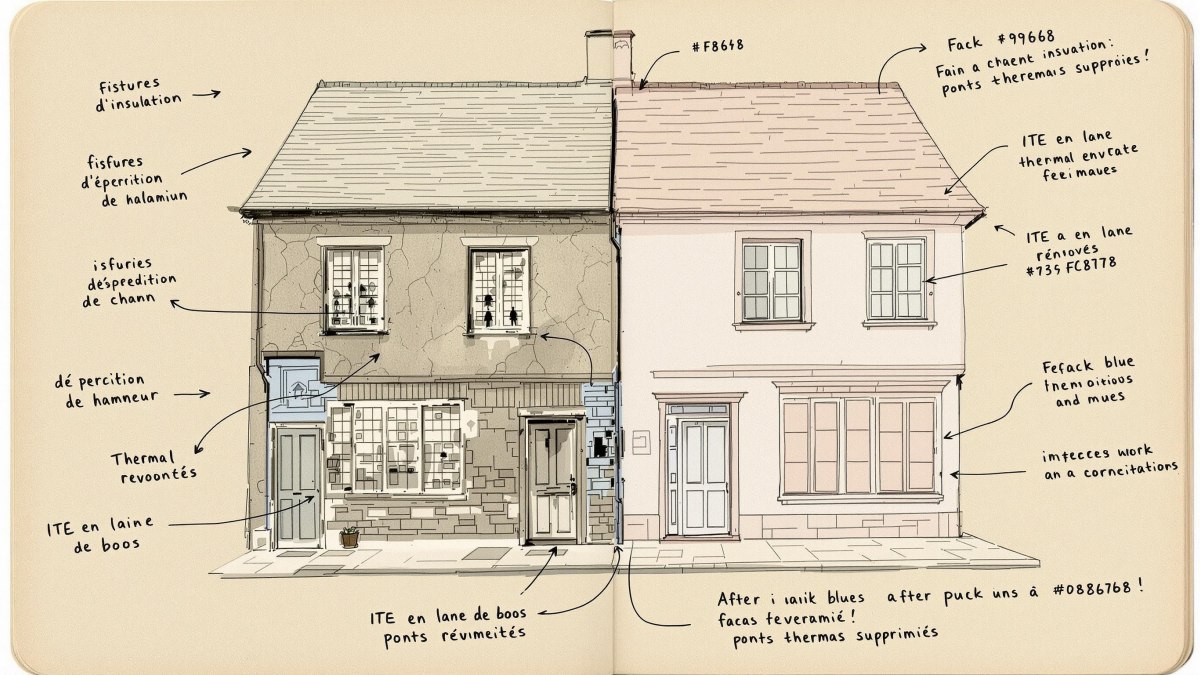 fistures
d'insulation
fisfures
d'éperrition
de halamiun
isfuries
déspredition
de chann
dé percition
de hamneur
Thermal
revoontés
ITE en laine
de boos
ITE en lane de boos
ponts révimeités
#F8648
Fack #99668
Fain a chaent insuation:
ponts theremais supproies!
ITE en lane
thermal envrate
feei maues
ITE a en lane
rénioves
#735 FC8778
Fefack blue
and mues
imfecces work
an a corneitations
After i blues after puck uns à #0886768!
facas feveramié!
ponts thermas supprimiés